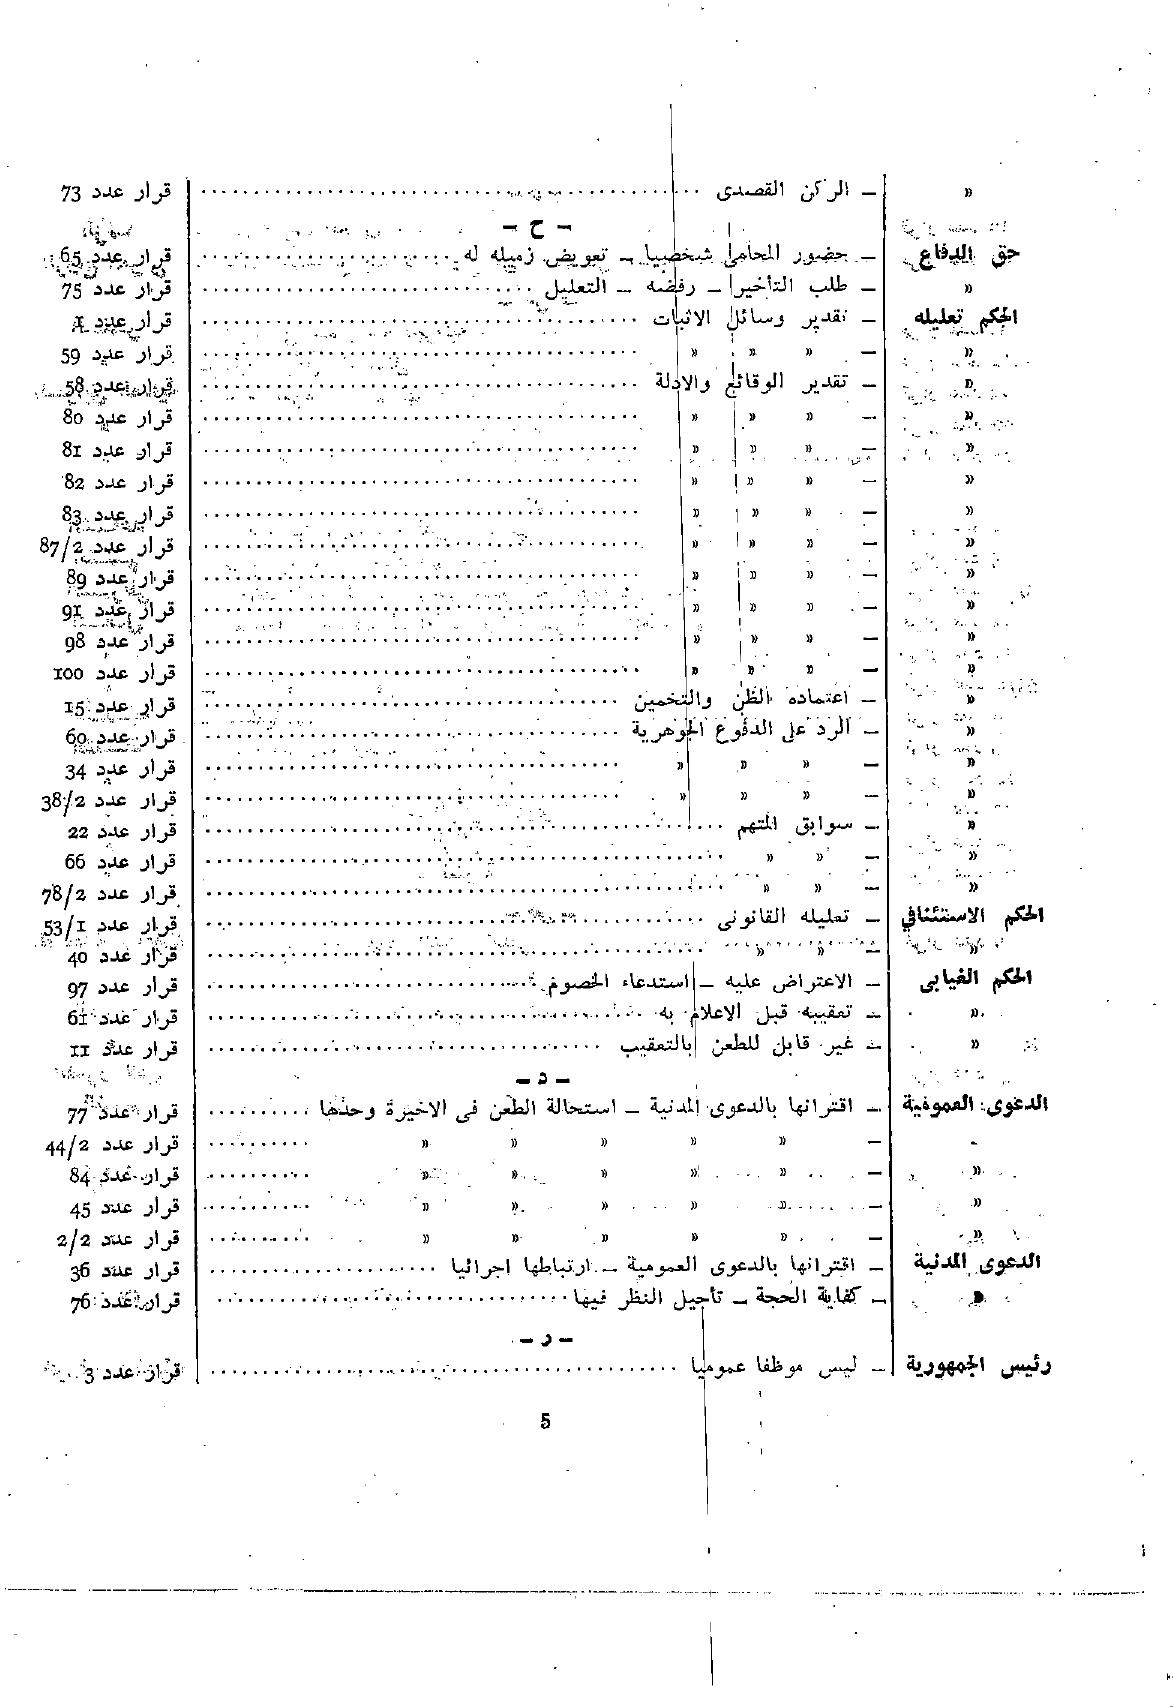 « — الركن القصدى ........ قرار عدد 73
— ح —
حق الدفاع — حضور المحامى شخصيا — تعويض زميله له ........ قرار عدد 65
« — طلب التأخير — رفضه — التعليل ........ قرار عدد 75
الحكم تعليله — تقدير وسائل الاثبات ........ قرار عدد 1
« — « « « ........ قرار عدد 59
« — تقدير الوقائع والادلة ........ قرار عدد 58
« — « « « ........ قرار عدد 80
« — « « « ........ قرار عدد 81
« — « « « ........ قرار عدد 82
« — « « « ........ قرار عدد 83
« — « « « ........ قرار عدد 87/2
« — « « « ........ قرار عدد 89
« — « « « ........ قرار عدد 91
« — « « « ........ قرار عدد 98
« — « « « ........ قرار عدد 100
« — اعتماده الظن والتخمين ........ قرار عدد 15
« — الرد على الدفوع الجوهرية ........ قرار عدد 60
« — « « « ........ قرار عدد 34
« — « « « ........ قرار عدد 38/2
« — سوابق المتهم ........ قرار عدد 22
« — « « ........ قرار عدد 66
« — « « ........ قرار عدد 78/2
الحكم الاستئنافي — تعليله القانونى ........ قرار عدد 53/1
« — « « ........ قرار عدد 40
الحكم الغيابى — الاعتراض عليه — استدعاء الخصوم ........ قرار عدد 97
« — تعقيبه قبل الاعلام به ........ قرار عدد 61
« — غير قابل للطعن بالتعقيب ........ قرار عدد 11
— د —
الدعوى العمومية — اقترانها بالدعوى المدنية — استحالة الطعن فى الاخيرة وحدها ........ قرار عدد 77
— « « « « « ........ قرار عدد 44/2
« — « « « « « ........ قرار عدد 84
« — « « « « « ........ قرار عدد 45
« — « « « « « ........ قرار عدد 2/2
الدعوى المدنية — اقترانها بالدعوى العمومية — ارتباطها اجرائيا ........ قرار عدد 36
« — كفاية الحجة — تأجيل النظر فيها ........ قرار عدد 76
— ر —
رئيس الجمهورية — ليس موظفا عموميا ........ قرار عدد 3
5